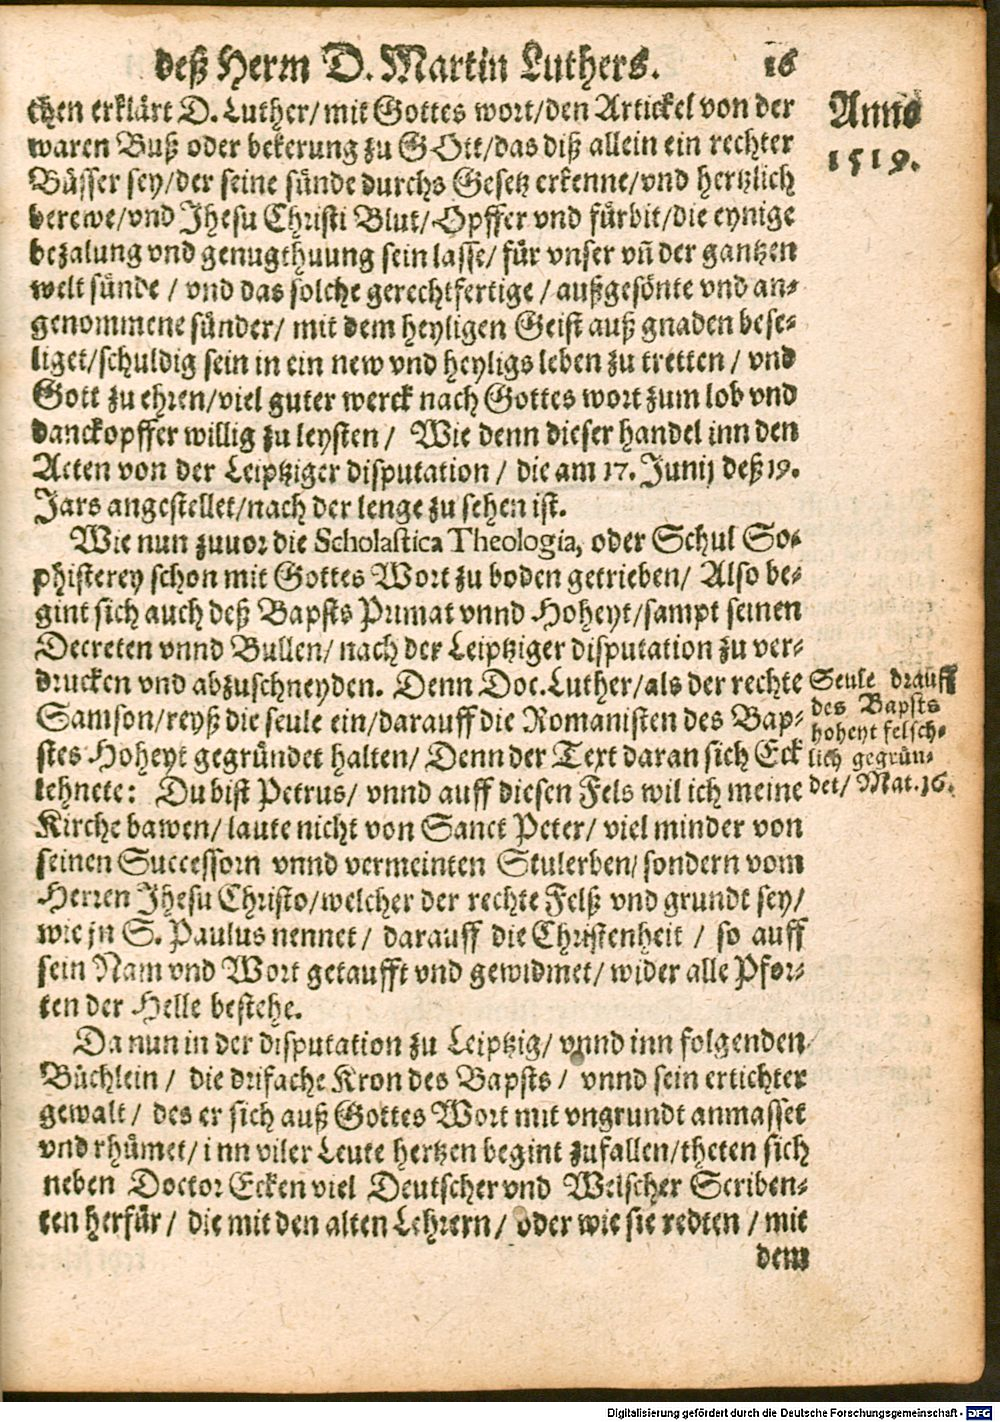 deß Herrn D. Martin Luthers. 16
chen erklärt D. Luther/mit Gottes wort/den Artickel von der
Anno
waren Buß oder bekerung zu GOtt/das diß allein ein rechter
1519.
Büsser sey/der seine sünde durchs Gesetz erkenne/vnd hertzlich
berewe/vnd Jhesu Christi Blut/Opffer vnd fürbit/die eynige
bezalung vnd genugthuung sein lasse/ für vnser vñ der gantzen
welt sünde / vnd das solche gerechtfertige / außgesönte vnd an-
genommene sünder/ mit dem heyligen Geist auß gnaden bese-
liget/schuldig sein in ein new vnd heyligs leben zu tretten / vnd
Gott zu ehren/viel guter werck nach Gottes wort zum lob vnd
danckopffer willig zu leysten / Wie denn dieser handel inn den
Acten von der Leiptziger disputation / die am 17. Junij deß 19.
Jars angestellet/nach der lenge zu sehen ist.
Wie nun zuuor die Scholastica Theologia, oder Schul So-
phisterey schon mit Gottes Wort zu boden getrieben/ Also be-
gint sich auch deß Bapsts Primat vnnd Hoheyt/sampt seinen
Decreten vnnd Bullen/ nach der Leiptziger disputation zu ver-
drucken vnd abzuschneyden. Denn Doc.Luther/als der rechte
Samson/reyß die seule ein/darauff die Romanisten des Bap-
stes Hoheyt gegründet halten/ Denn der Text daran sich Eck
lehnete: Du bist Petrus/ vnnd auff diesen Fels wil ich meine
Seule drauff
des Bapsts
hoheyt felsch-
lich gegrün-
det/ Mat.16.
Kirche bawen/ laute nicht von Sanct Peter/ viel minder von
seinen Successorn vnnd vermeinten Stulerben/ sondern vom
Herren Jhesu Christo/welcher der rechte Felß vnd grundt sey/
wie jn S. Paulus nennet / darauff die Christenheit / so auff
sein Nam vnd Wort getaufft vnd gewidmet/ wider alle Pfor-
ten der Helle bestehe.
Da nun in der disputation zu Leiptzig/ vnnd inn folgenden
Büchlein / die drifache Kron des Bapsts / vnnd sein ertichter
gewalt / des er sich auß Gottes Wort mit vngrundt anmasset
vnd rhümet/ inn viler Leute hertzen begint zufallen/theten sich
neben Doctor Ecken viel Deutscher vnd Welscher Scriben-
ten herfür / die mit den alten Lehrern / oder wie sie redten / mit
dem
Digitalisierung gefördert durch die Deutsche Forschungsgemeinschaft - DFG